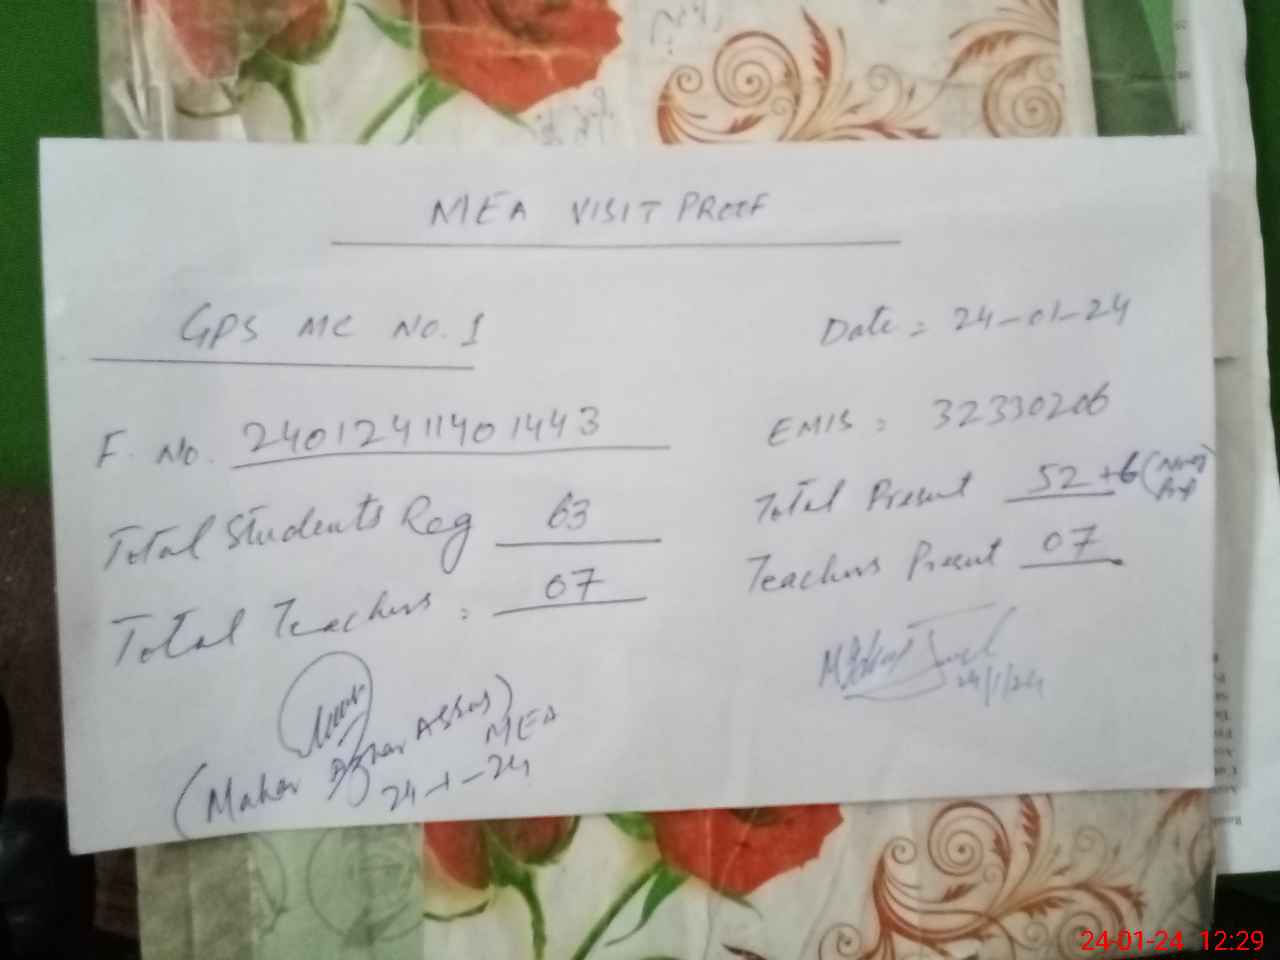 MEA VISIT PROOF
GPS MC NO. 1
Date = 24-01-24
F. No. 2401241140 1443
EMIS = 32330206
Total Students Reg 63
Total Present 52 + 6
Total Teachers : 07
Teachers Present 07
24/1/24
(Mahar Azhar Abbas)
MEA
24-1-24
24-01-24 12:29